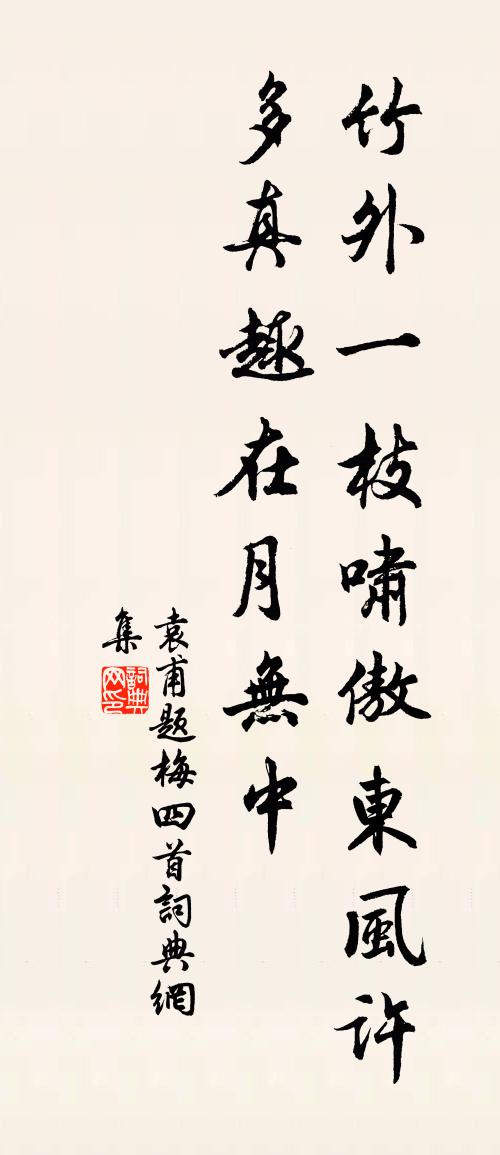 竹外一枝嘯傲東風許
多真趣在月無中
袁甫題梅四首詞典網
集
詞典
网印